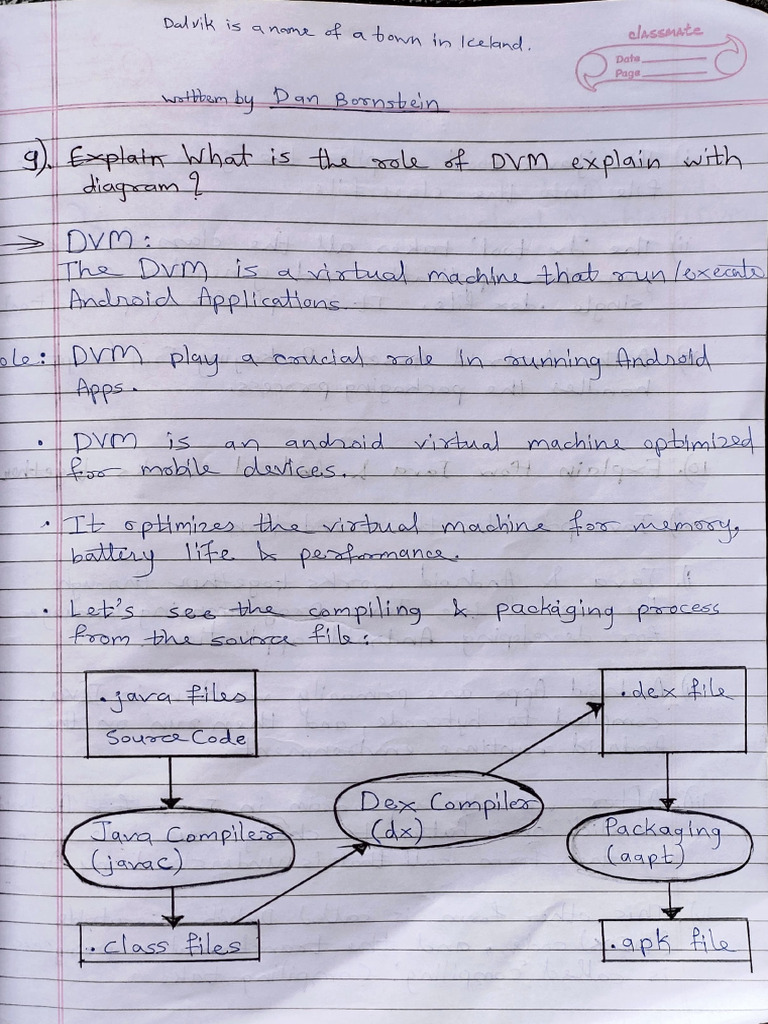 Dalvik is a name of a town in Iceland.
classmate
Date
Page
written by Dan Bornstein
9). Explain What is the role of DVM explain with
diagram ?
→ DVM :
The DVM is a virtual machine that run/execute
Android Applications
ole: DVM play a crucial role in running Android
Apps.
• DVM is an android virtual machine optimized
for mobile devices.
• It optimizes the virtual machine for memory,
battery life & performance.
• Let's see the compiling & packaging process
from the source file:
.java files
Source Code
.dex file
Dex Compiler
(dx)
Java Compiler
(javac)
Packaging
(aapt)
.class files
.apk file